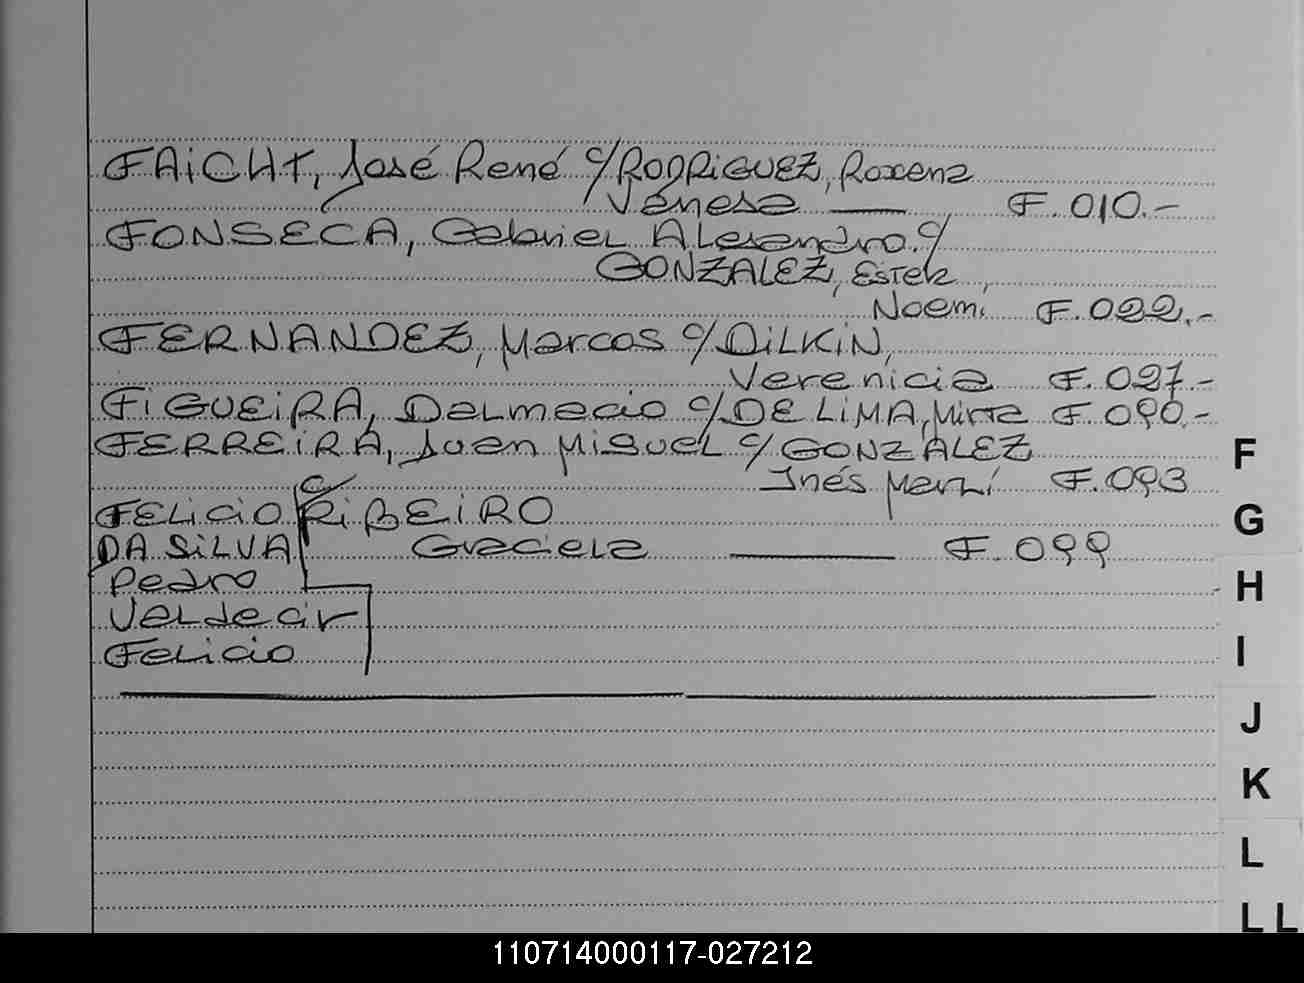 FAICHT, José René c/RODRIGUEZ, Roxana
Vanesa — F. 010.-
FONSECA, Gabriel Alejandro. c/
GONZALEZ, Ester
Noemí F. 022.-
FERNANDEZ, Marcos c/ DILKIN,
Verenicia F. 027.-
FIGUEIRA, Dalmacio c/DE LIMA, Mirta F. 090.-
FERREIRA, Juan Miguel c/ GONZALEZ
Inés Marlí F. 093
FELICIO c/ RIBEIRO
DA SILVA Graciela — F. 099
Pedro
Valdecir
Felicio
F
G
H
I
J
K
L
LL
110714000117-027212